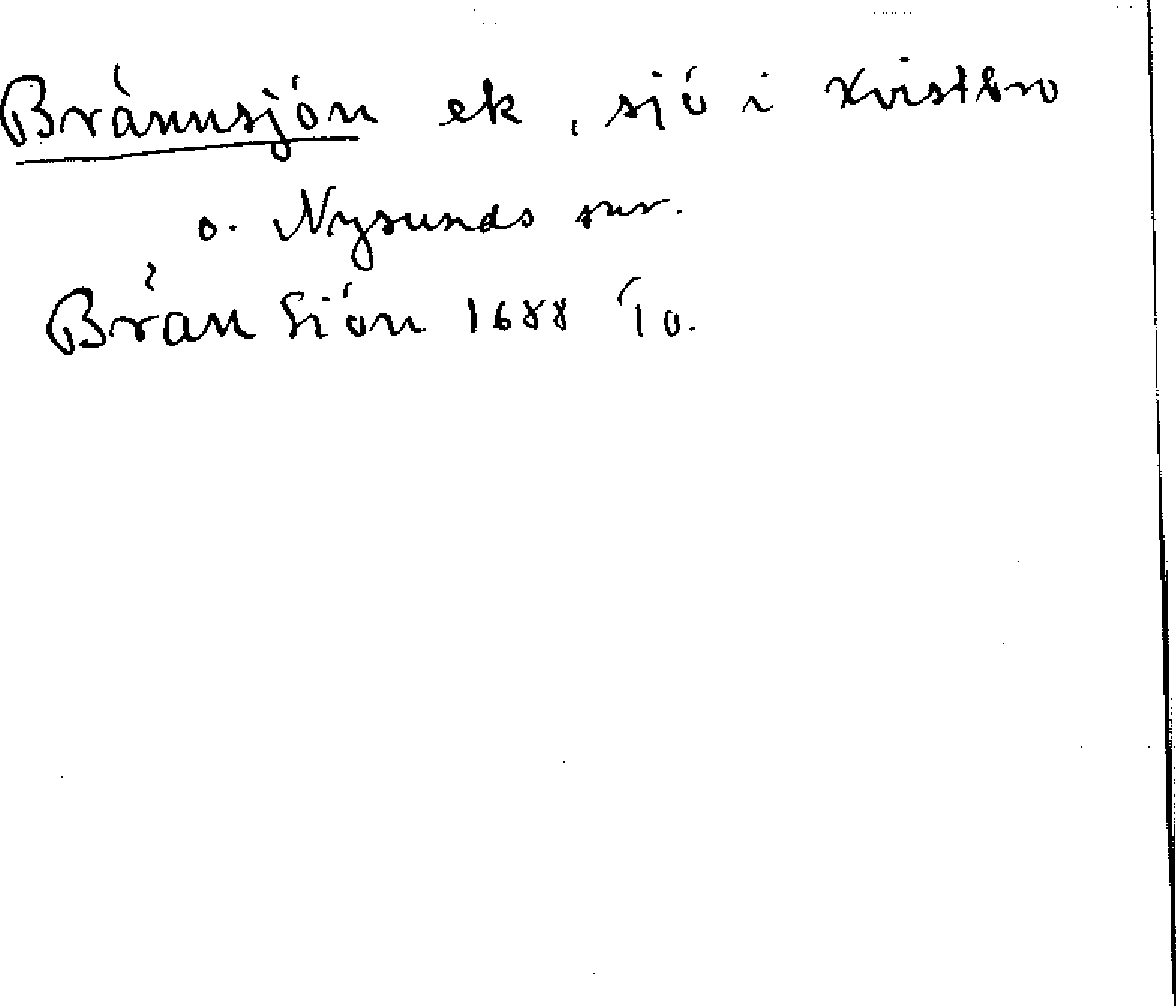 Brännsjön ek, sjö i Kvistbro
o. Nysunds snr.
Brän Siön 1688 Ío.